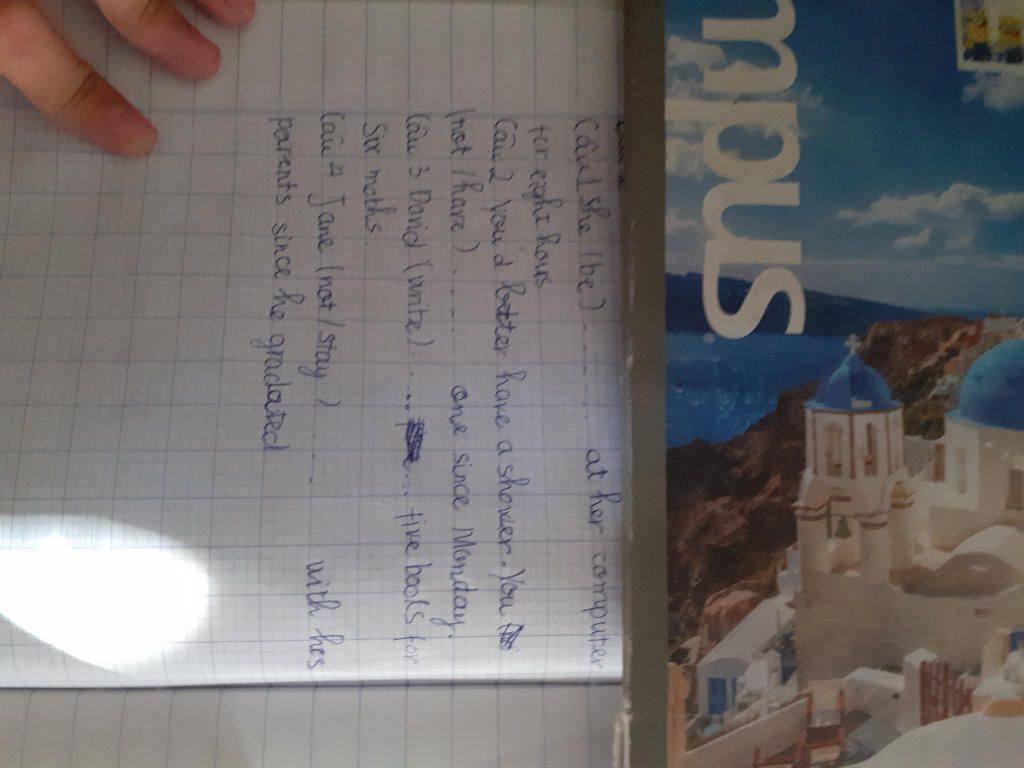 mpus
Câu 1 She (be) ........ at her computer
for eight hours
Câu 2 You'd better have a shower. You
(not / have) ..... one since Monday.
Câu 3 David (write) ........ five books for
Six moths.
Câu 4 Jane (not / stay) ..... with hes
parents since he gradated